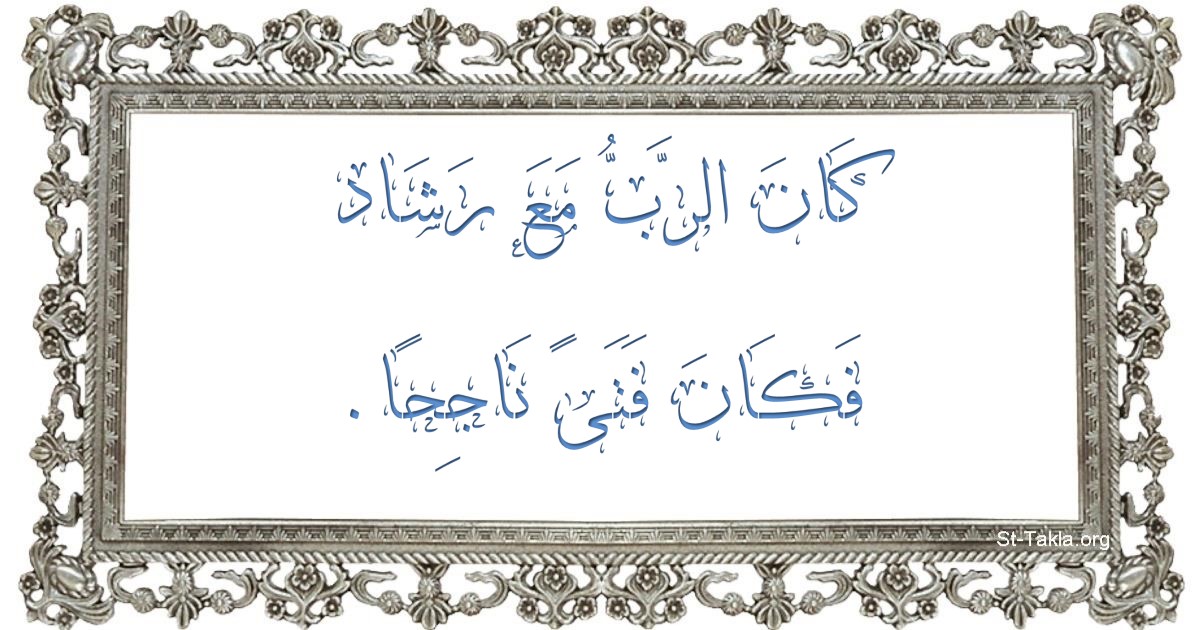 كَانَ الرَّبُّ مَعَ رَشَاد
فَكَانَ فَتَىً نَاجِحًا .
St-Takla.org